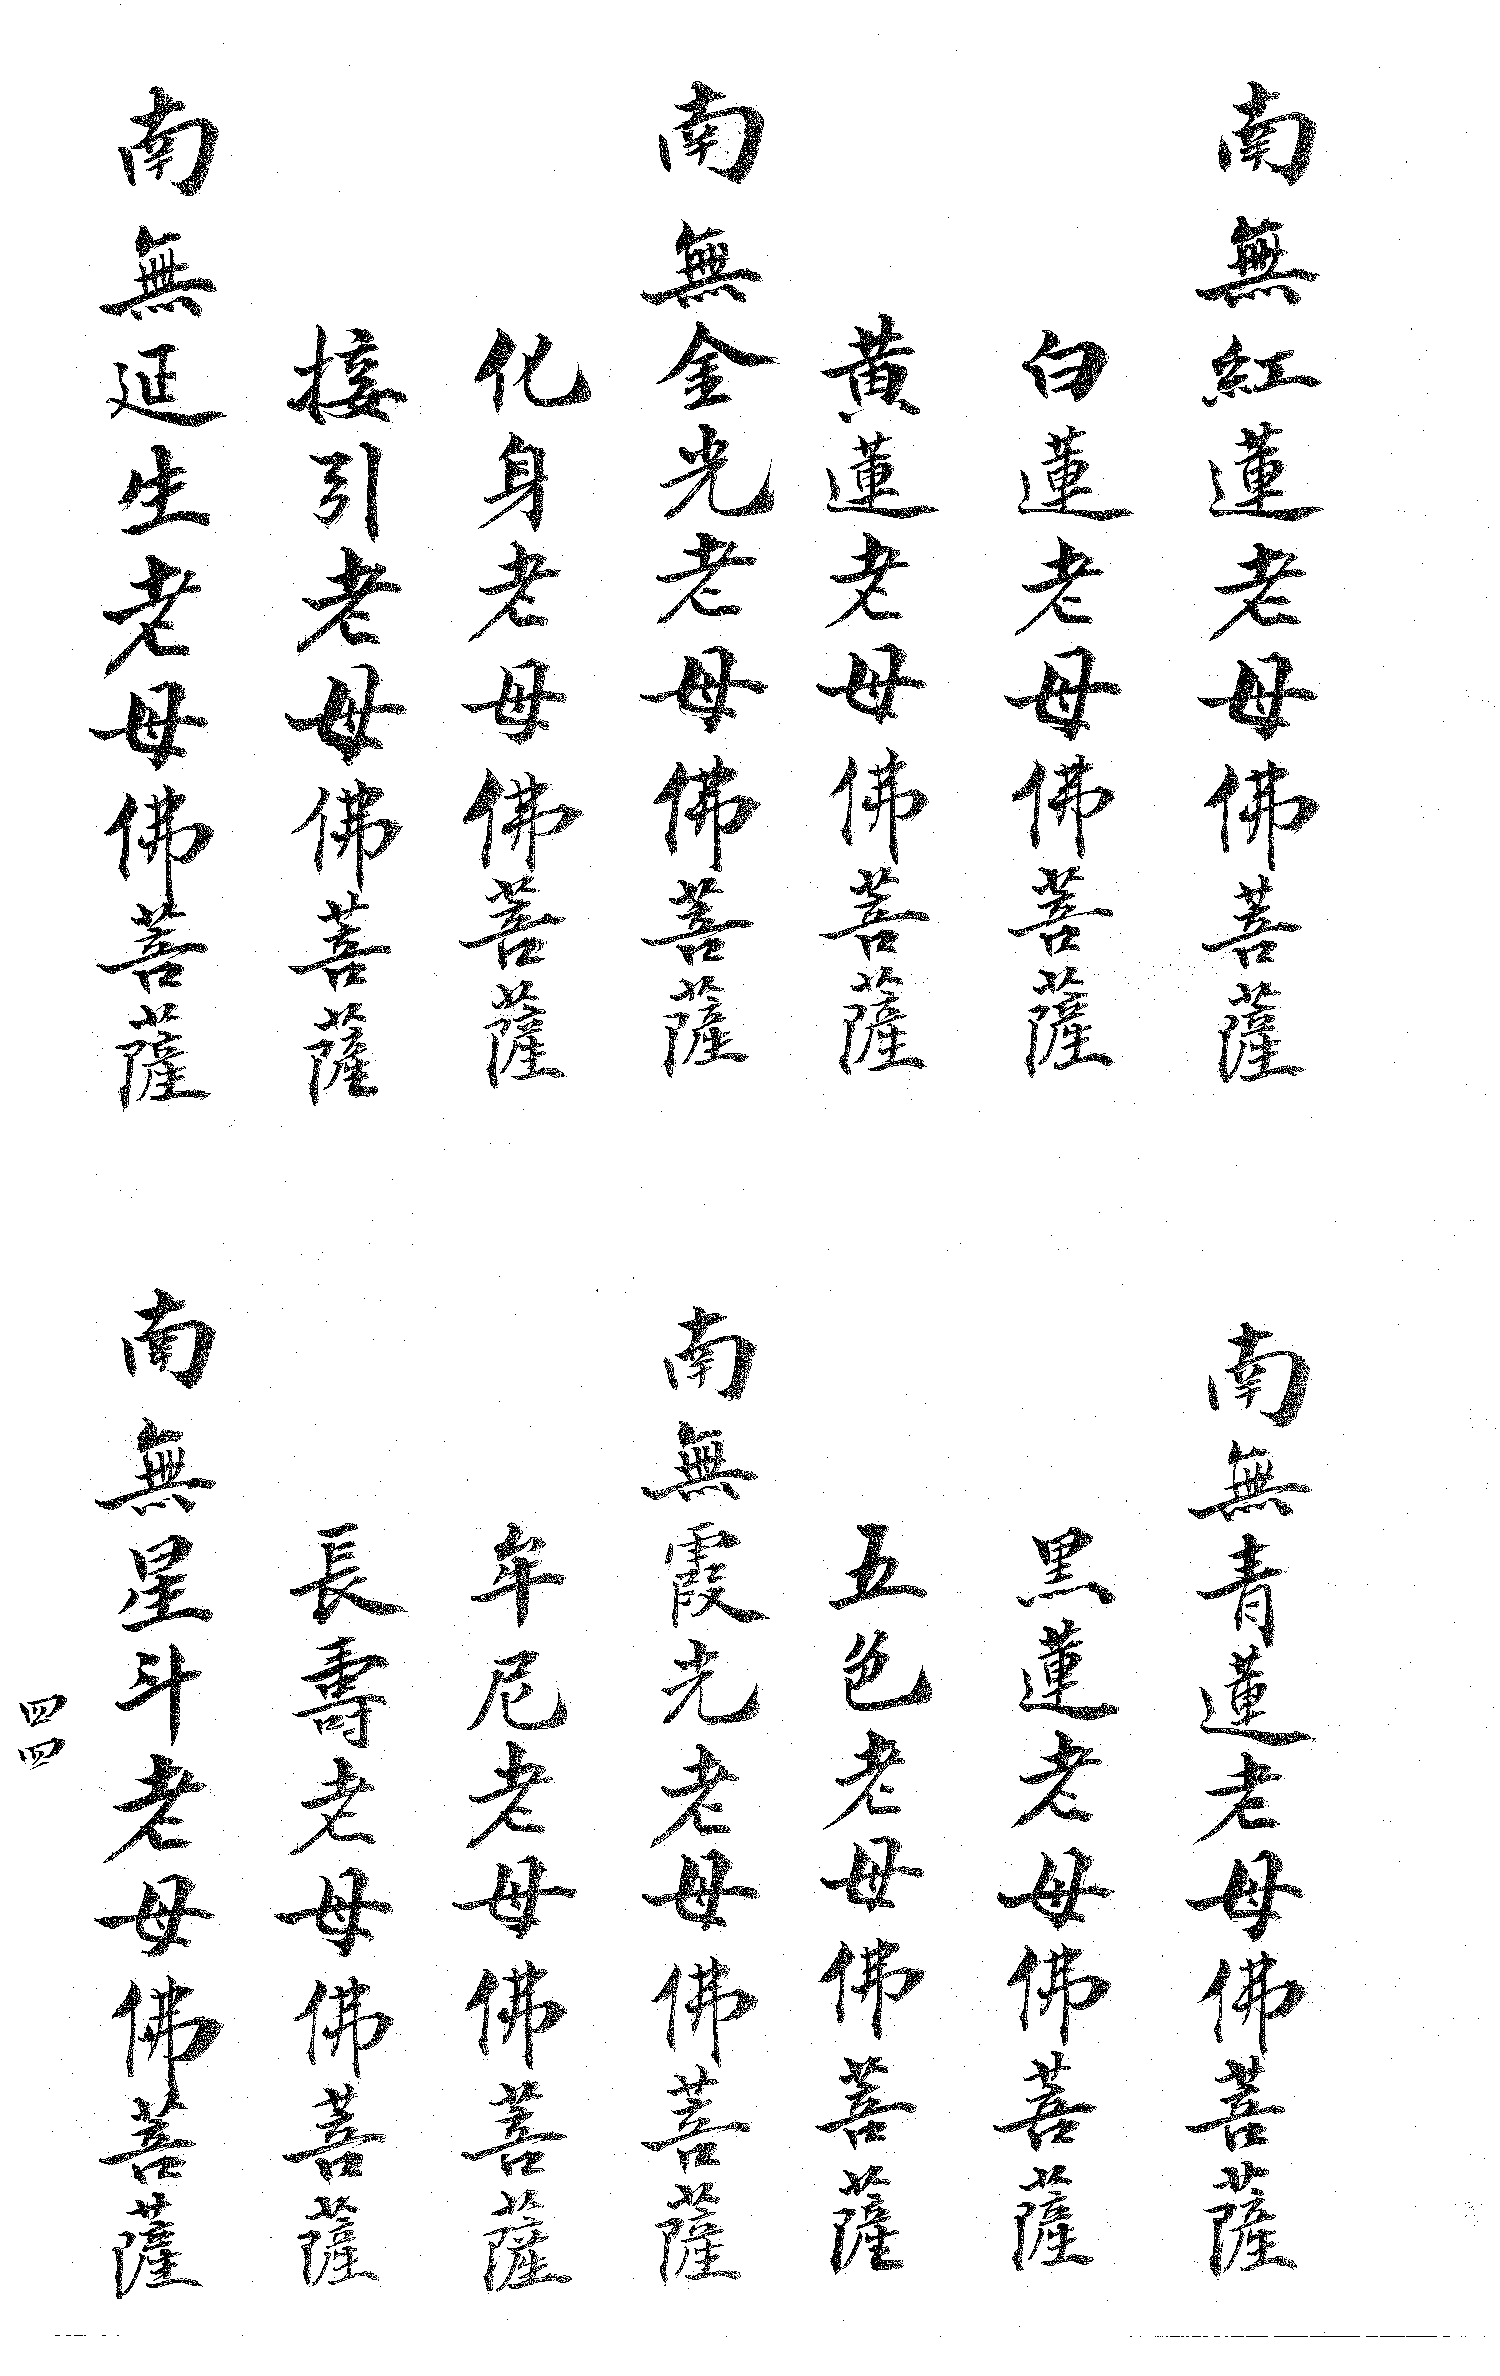 南無紅蓮老母佛菩薩
南無青蓮老母佛菩薩
白蓮老母佛菩薩
黑蓮老母佛菩薩
黃蓮老母佛菩薩
五色老母佛菩薩
南無金光老母佛菩薩
南無霞光老母佛菩薩
化身老母佛菩薩
牟尼老母佛菩薩
接引老母佛菩薩
長壽老母佛菩薩
南無延生老母佛菩薩
南無星斗老母佛菩薩
四四